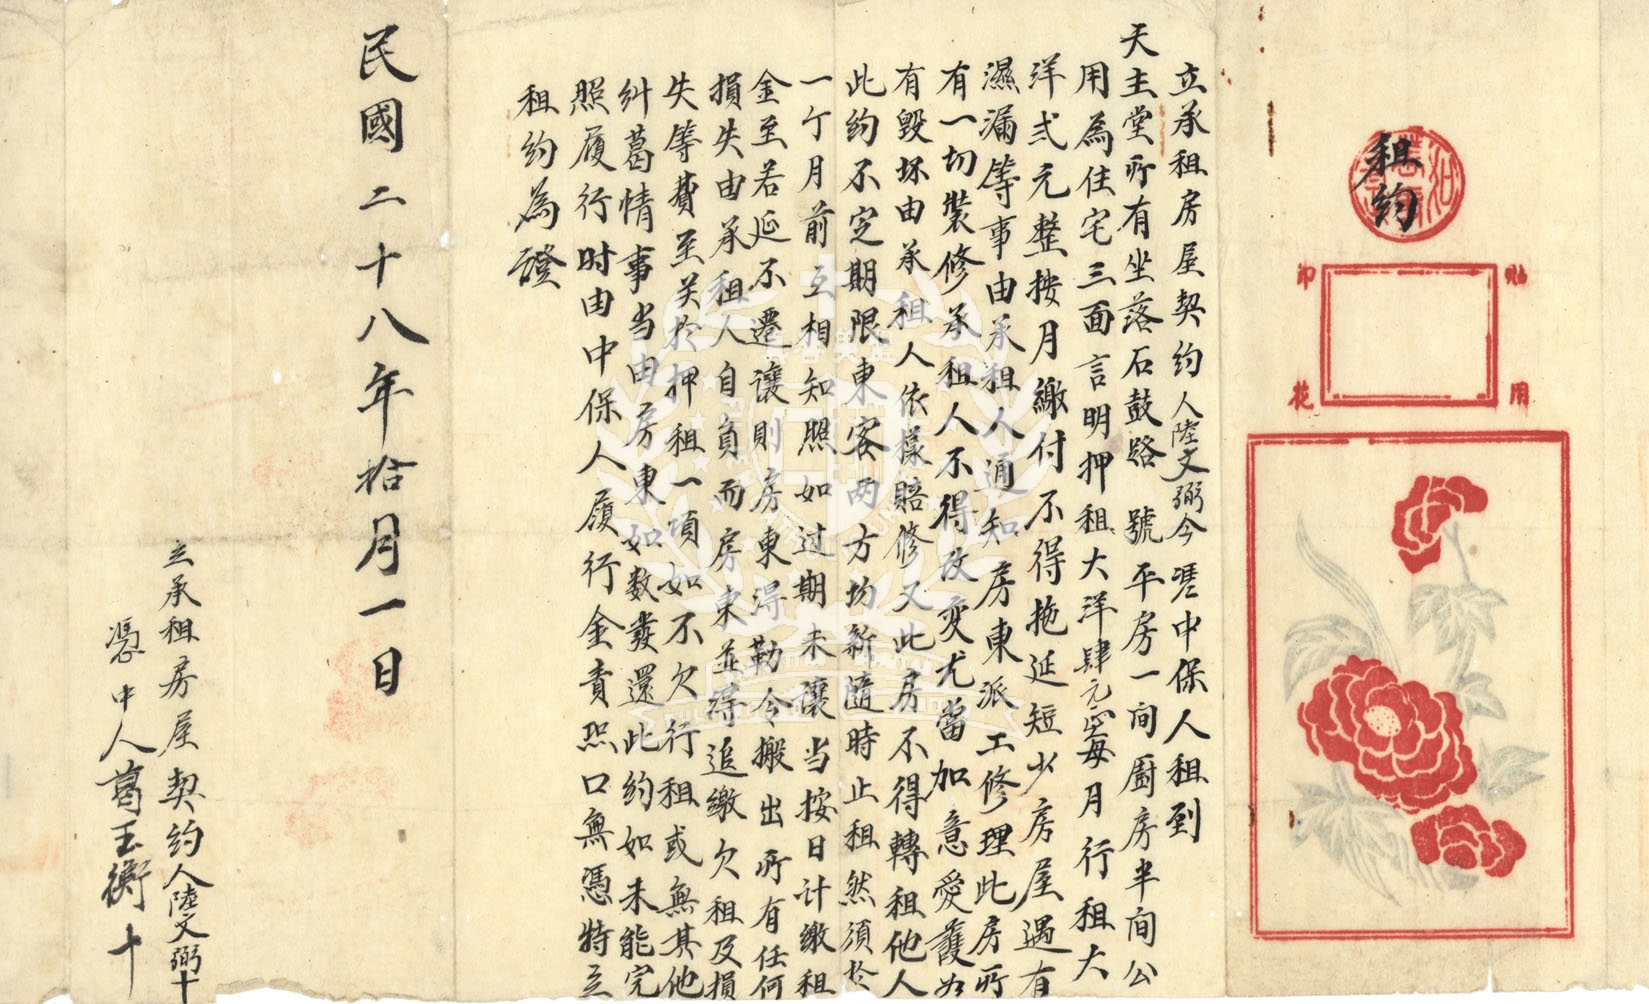 租約
貼用
印花
立承租房屋契約人陸文弼今憑中保人租到
天主堂所有坐落石鼓路 號平房一間廚房半間公
用為住宅三面言明押租大洋肆元正每月行租大
洋弍元整按月繳付不得拖延短少房屋遇有
濕漏等事由承租人通知房東派工修理此房所
有一切裝修承租人不得改变尤當加意愛護如
有毀坏由承租人依樣賠修又此房不得轉租他人
此約不定期限東客两方均新隨時止租然須於
一个月前互相知照如过期未讓当按日计繳租
金至若延不遷讓則房東得勒令搬出所有任何
損失由承租人自負而房東並得追繳欠租及損
失等費至关於押租一項如不欠行租或無其他
糾葛情事当由房東如数發還此約如未能完
照履行时由中保人履行金責恐口無憑特立
租約為證
民國二十八年拾月一日
立承租房屋契約人陸文弼十
憑中人葛玉衡十